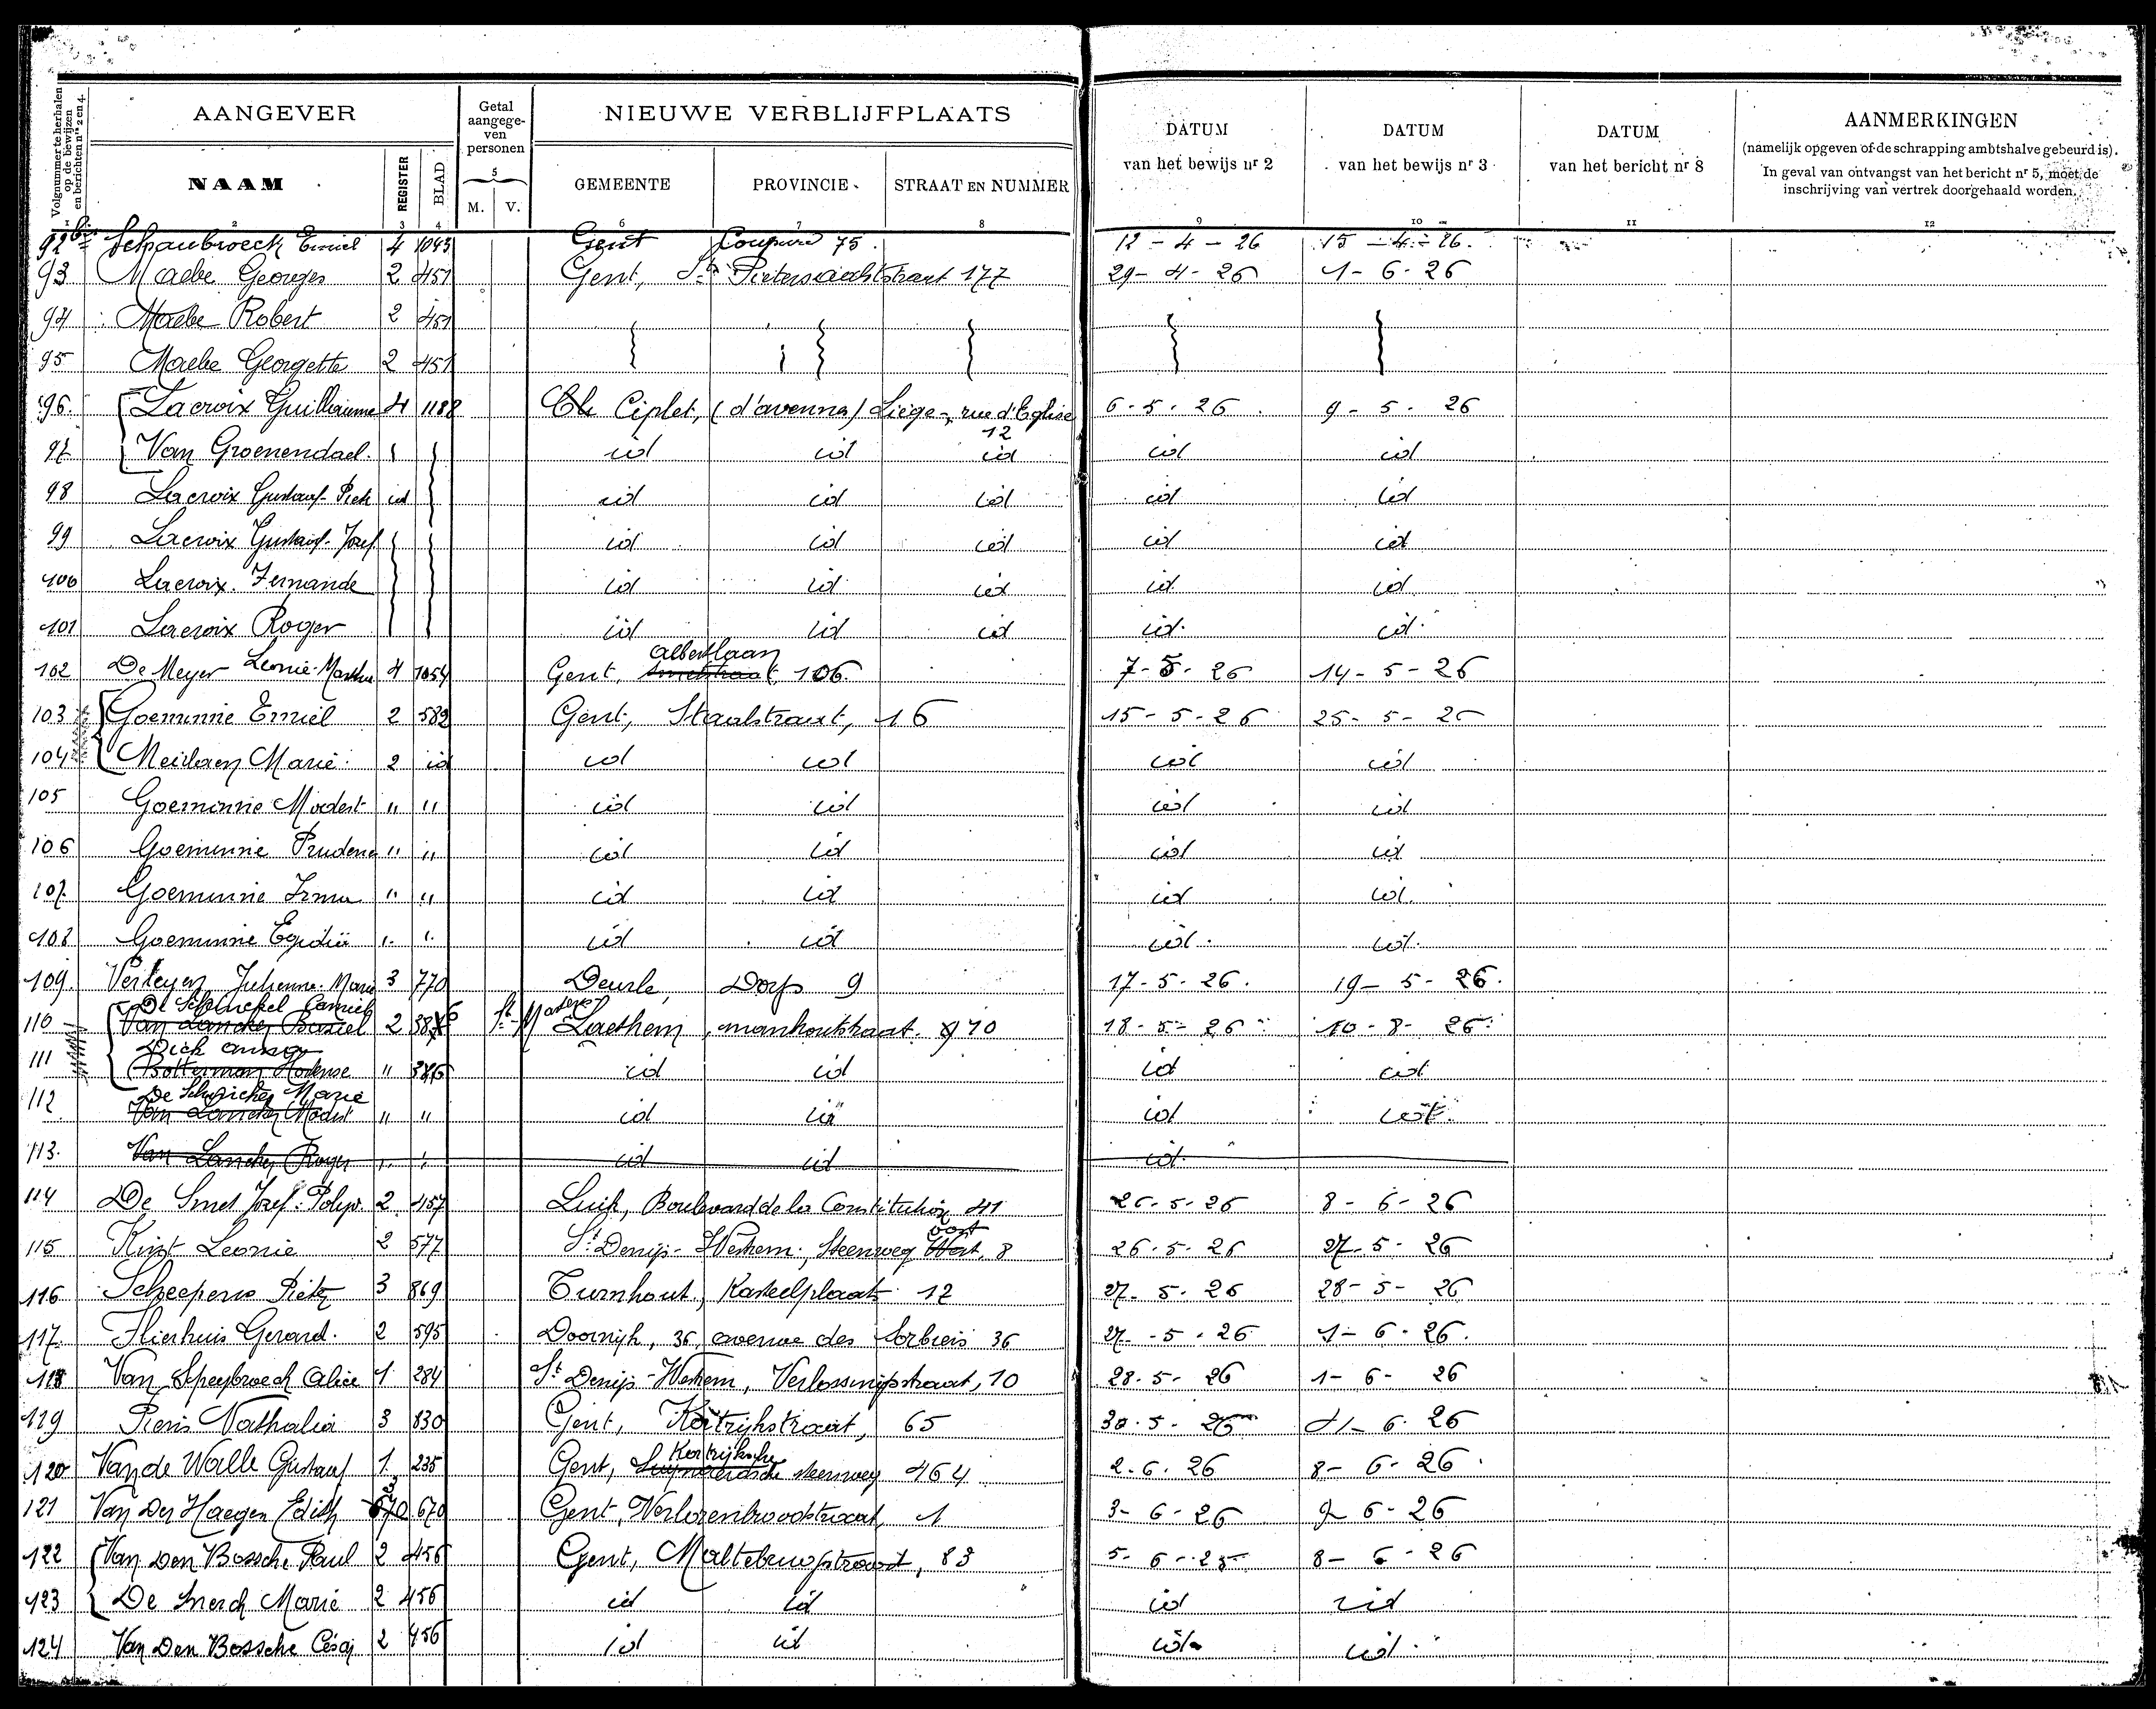 Volgnummer te herhalen op de bewijzen en berichten nrs 2 en 4.
AANGEVER
Getal aangegeven personen
NIEUWE VERBLIJFPLAATS
DATUM van het bewijs nr 2
DATUM van het bewijs nr 3
DATUM van het bericht nr 8
AANMERKINGEN
(namelijk opgeven of de schrapping ambtshalve gebeurd is).
In geval van ontvangst van het bericht nr 5, moet de
inschrijving van vertrek doorgehaald worden.
NAAM REGISTER BLAD M. V. GEMEENTE PROVINCIE STRAAT EN NUMMER
1 2 3 4 5 6 7 8 9 10 11 12
92bis Schaubroeck Emiel 4 1043 Gent Coupure 75. 12-4-26 15-4-26.
93 Maebe Georges 2 451 Gent, St. Pietersaaltstraat 177 29-4-26 1-6-26
94 Maebe Robert 2 451
95 Maebe Georgette 2 451
96. Lacroix Guillaume 4 1188 Ciplet, (d'avenna) Liège, rue d'Eglise 12 6-5-26 9-5-26
97 Van Groenendael id id id id id
98 Lacroix Gustaaf-Piet id id id id id id
99 Lacroix Gustaaf-Jozef id id id id id
100 Lacroix Fernande id id id id id
101 Lacroix Roger id id id id id
102 De Meyer Leonie-Martha 4 1054 Gent, Albertlaan 106. 7-5-26 14-5-26
103 Goeminne Emiel 2 582 Gent, Staalstraat, 16 15-5-26 25-5-26
104 Marie 2 id id id id id
105 Goeminne Modest " " id id id id
106 Goeminne Prudence " " id id id id
107 Goeminne Irma " " id id id id
108 Goeminne " " id id id id
109. Verleyen Julienne-Marie 3 770 Deurle, Dorp 9 17-5-26. 19-5-26.
110 De Schinckel Camiel Van Lancker Basiel 2 St Martens Laethem, 10 18-5-26 10-8-26
111 Botterman Hortense " 386 id id id id
112 Marie Van Lancker Modest " " id id id id
113. Van Lancker Roger " " id id id
114 De Smet Jozef-Polyd. 2 457 Luik, Boulevard de la Constitution 41 26-5-26 8-6-26
115 Kint Leonie 2 577 St Denijs-Westrem, Steenweg Oost West, 8 26-5-26 27-5-26
116 Scheepers Pieter 3 869 Turnhout, Kasteelplaats 12 27-5-26 28-5-26
117 Flierhuis Gerard. 2 595 Doornijk, 36, avenue des Sorbiers 36 27-5-26 1-6-26.
118 Van Speybroeck Alice 1 284 St Denijs-Westrem, Verlossingstraat, 10 28-5-26 1-6-26
119 Pieris Nathalia 3 830 Gent, Kortrijkstraat, 65 30-5-26 1-6-26
120 Van de Walle Gustaaf 1 235 Gent, Kortrijksche steenweg 464 2-6-26 8-6-26
121 Van Der Haegen Edith 670 3 670 Gent, Verlorenbroodstraat, 1 3-6-26 9-6-26
122 Van Den Bossche Paul 2 456 Gent, Maltebrugstraat, 83 5-6-25 8-6-26
123 De Snerck Marie 2 456 id id id id
124 Van Den Bossche 2 456 id id id id